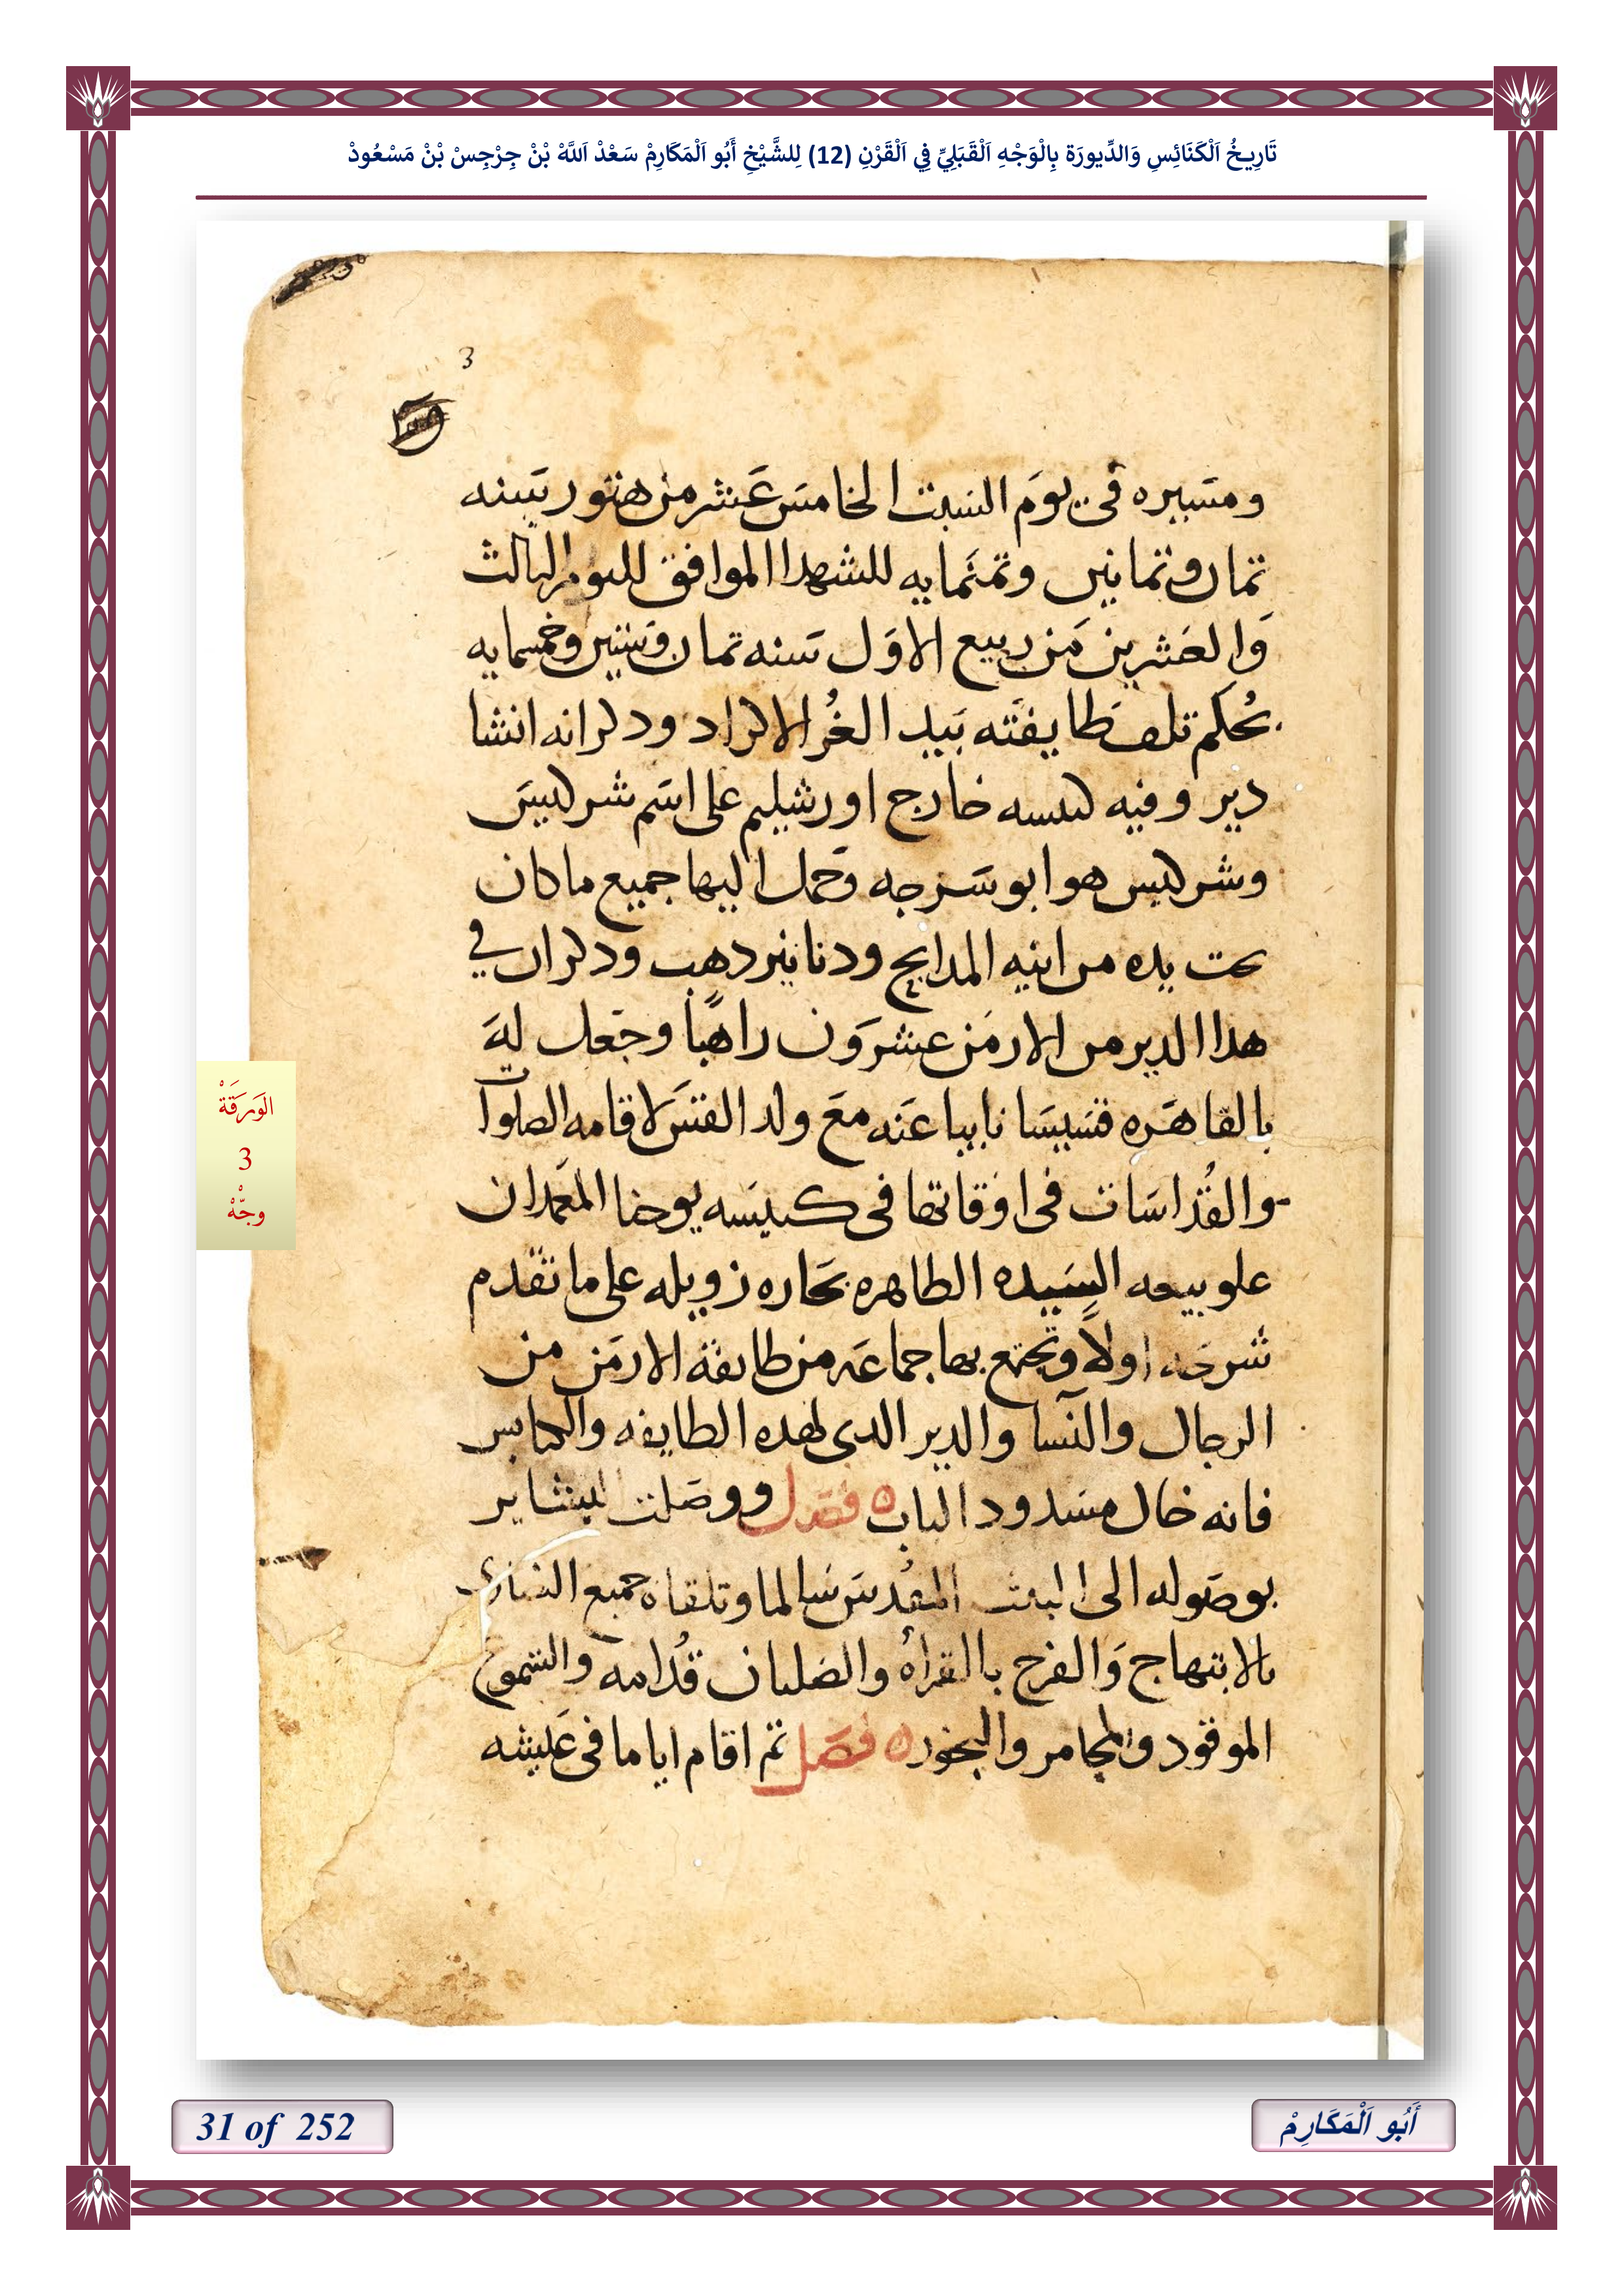 تَارِيخُ اَلْكَنَائِسِ وَالدِّيورَة بِالْوَجْهِ اَلْقَبَلِيِّ فِي اَلْقَرْنِ (12) لِلشَّيْخِ أَبُو اَلْمَكَارِمْ سَعْدْ اَللَّهْ بْنْ جِرْجِسْ بْنْ مَسْعُودْ
3
ومسيره في يوم السبت الخامس عشر من هتور سنه
ثمان وثمانين وثمنمايه للشهدا الموافق لليوم الثالث
والعشرين من ربيع الاول سنه ثمان وستين وخمسمايه
بحكم تلف طايفته بيد الغُز الاكراد ودكر انه انشا
دير وفيه كنيسه خارج اورشليم على اسم شركيس
وشركيس هو ابو سرجه وحمل اليها جميع ما كان
تحت يده من انيه المدابح ودنانير دهب ودكر ان في
هدا الدير من الارمن عشرون راهبًا وجعل له
بالقاهره قسيسا نايبا عنه مع ولد القس لاقامه الصلوات
والقُداسات في اوقاتها في كنيسه يوحنا المعمدان
علو بيعه السيده الطاهره بحاره زويله على ما تقدم
شرحه اولاً وتجتمع بها جماعه من طايفة الارمن من
الرجال والنسا والدير الدى لهده الطايفه والكنايس
فانه خال مسدود الباب ه فصل ووصلت البشاير
بوصوله الى البيت المقدس سالما وتلقاه جميع النصارى
بالابتهاج والفرح بالقراه والصلبان قُدامه والشموع
الموقود والمجامر والبخور ه فصل ثم اقام اياما في عيشه
الوَرَقَةْ
3
وجّهْ
31 of 252
أَبُو اَلْمَكَارِمْ